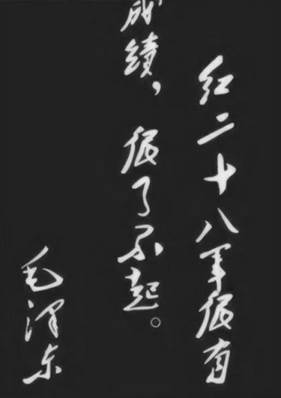 红二十八军很有
成績，很了不起。
毛澤东